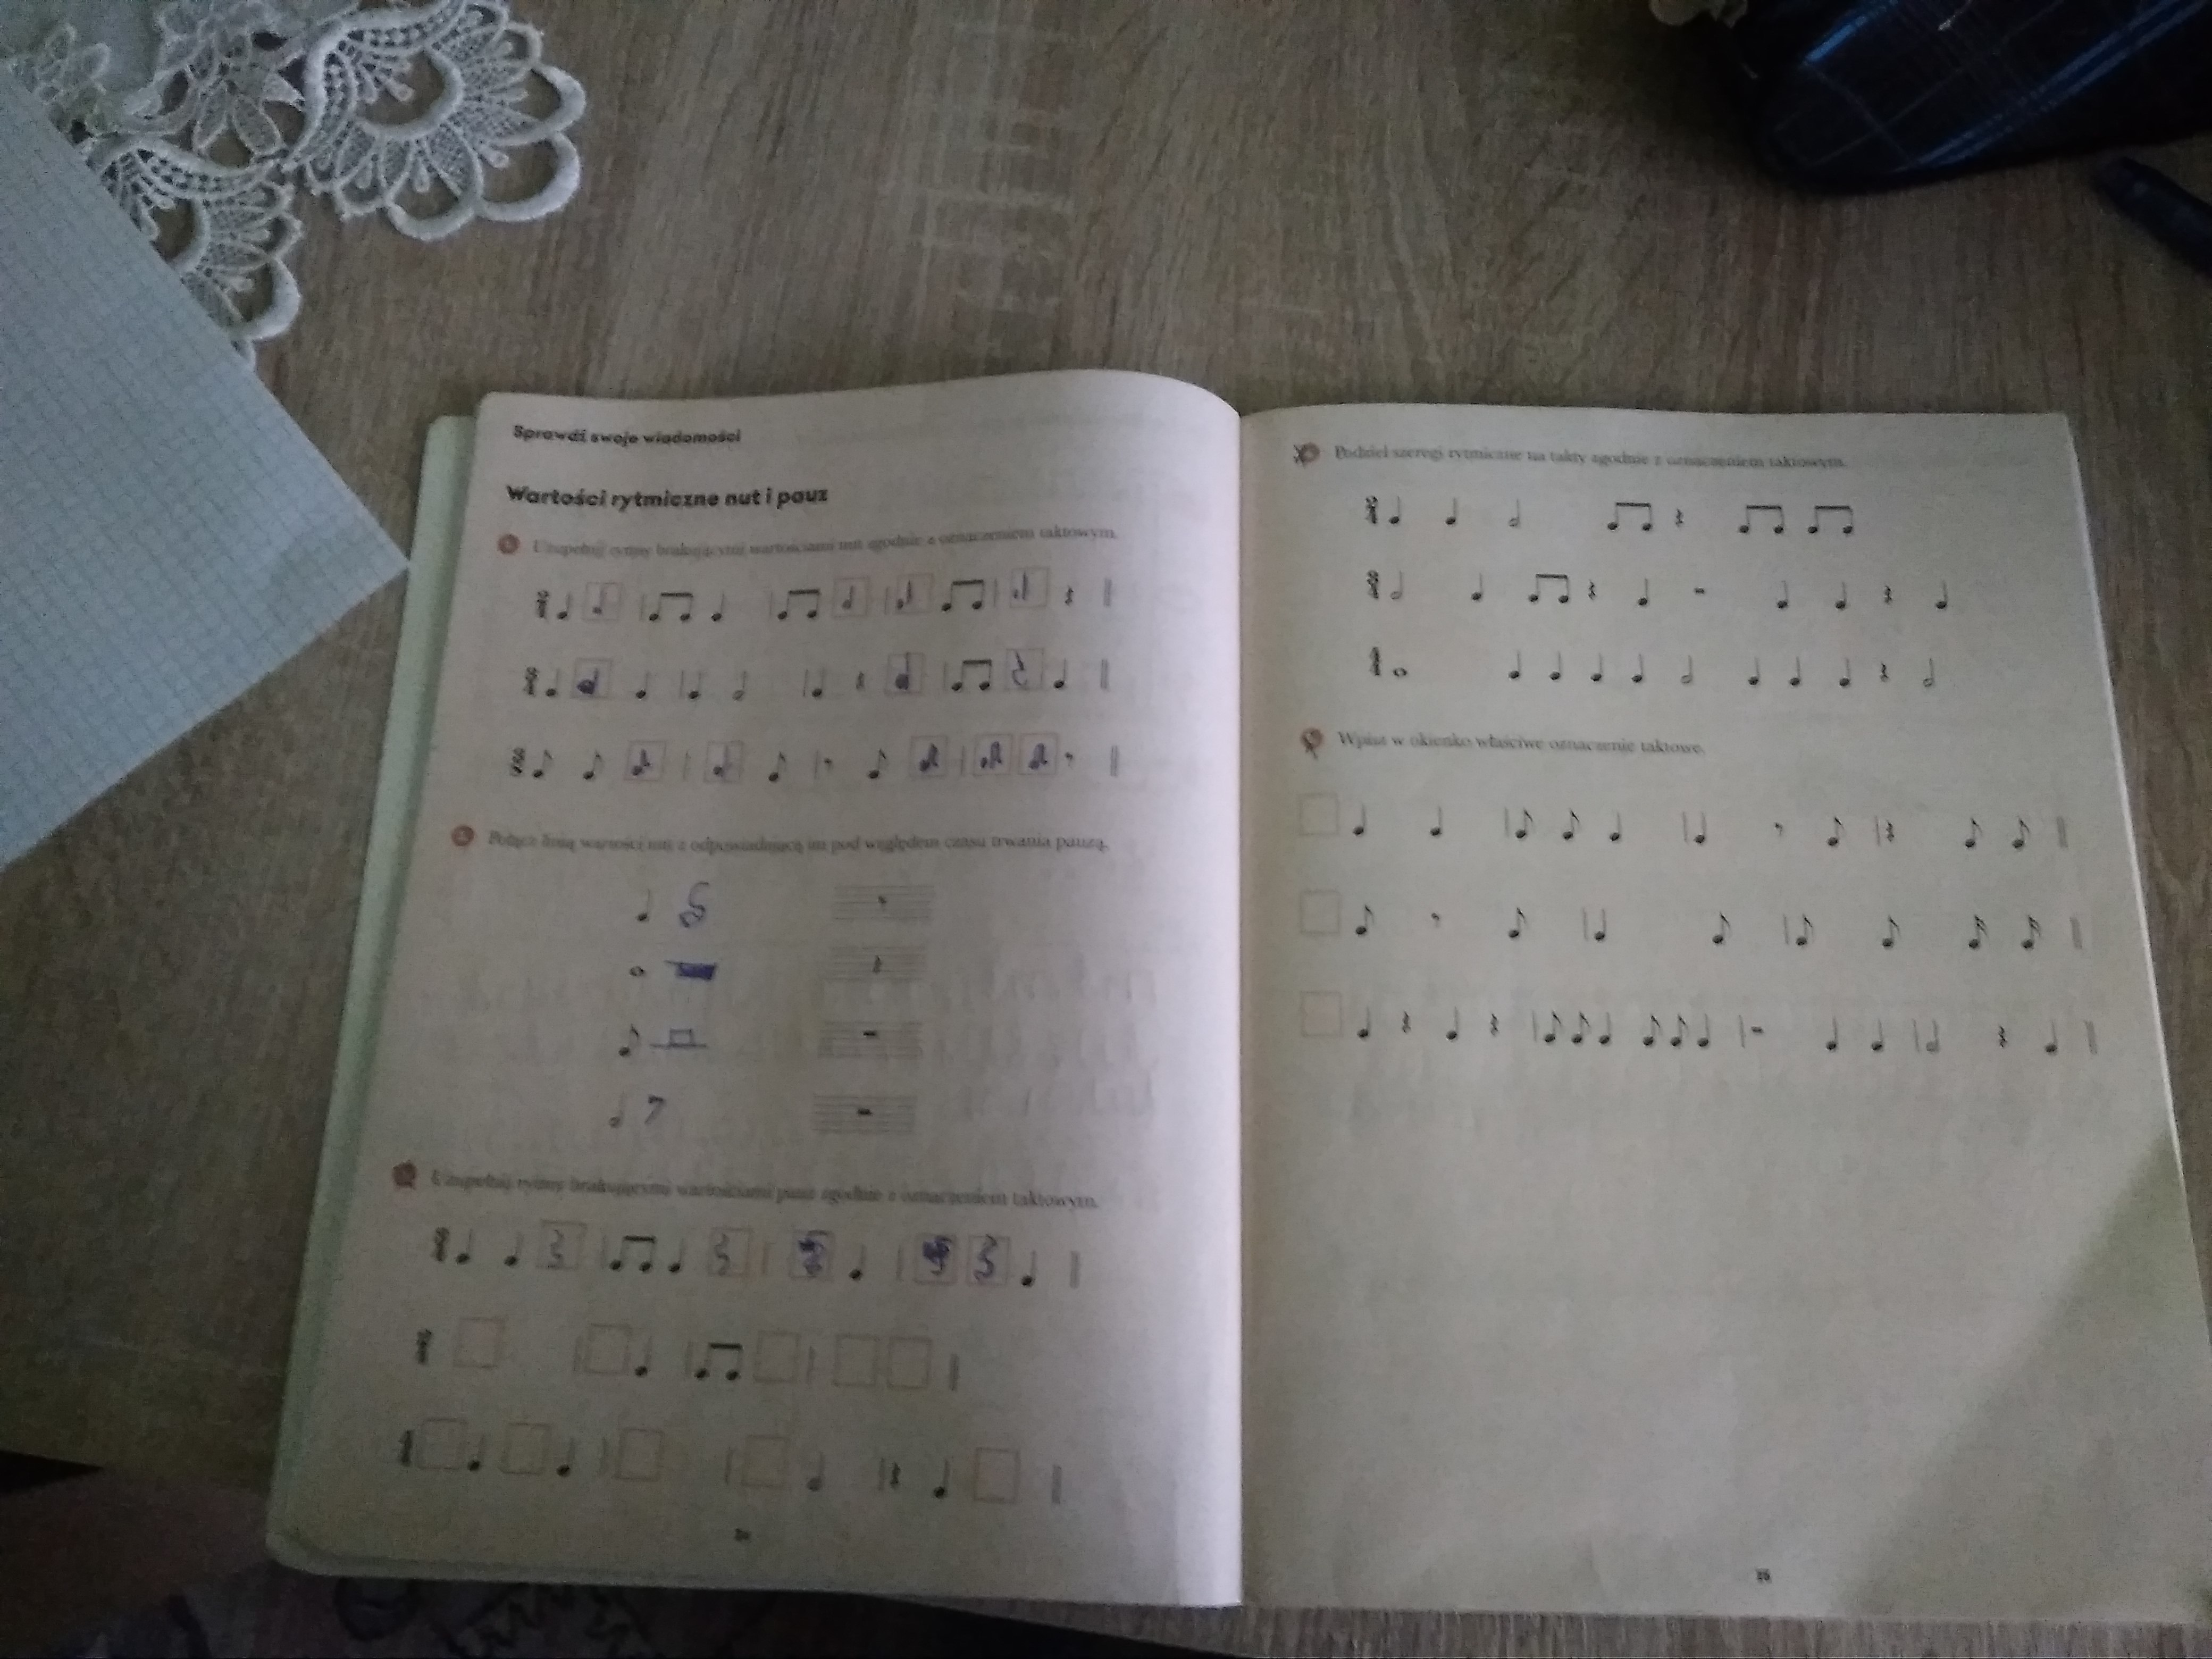 Sprawdź swoje wiadomości
Wartości rytmiczne nut i pauz
Uzupełnij rytmy brakującymi wartościami nut zgodnie z oznaczeniem taktowym.
Połącz linią wartości nut z odpowiadającą im pod względem czasu trwania pauzą.
Uzupełnij rytmy brakującymi wartościami pauz zgodnie z oznaczeniem taktowym.
Podziel szeregi rytmiczne na takty zgodnie z oznaczeniem taktowym.
Wpisz w okienko właściwe oznaczenie taktowe.